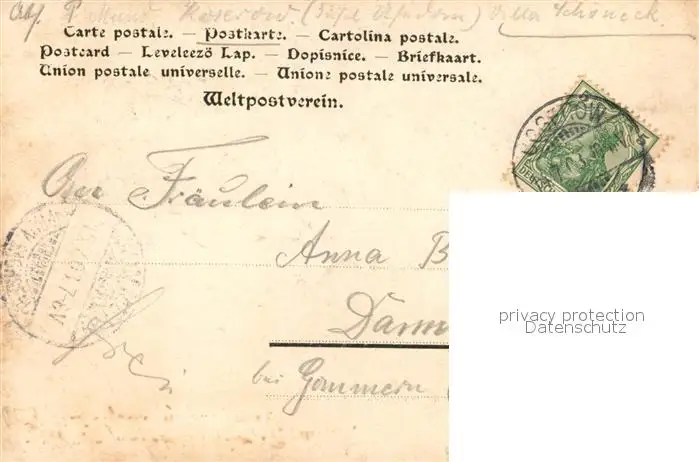 Abs. P. Mund Koserow. (Insel Usedom) Villa Schöneck.
Carte postale. — Postkarte. — Cartolina postale.
Postcard — Levelező Lap. — Dopisnice. — Briefkaart.
Union postale universelle. — Unione postale universale.
Weltpostverein.
KOSEROW
DEUTSCH
An Fräulein
Anna B
Dann
bei Gommern (
Frei
privacy protection
Datenschutz